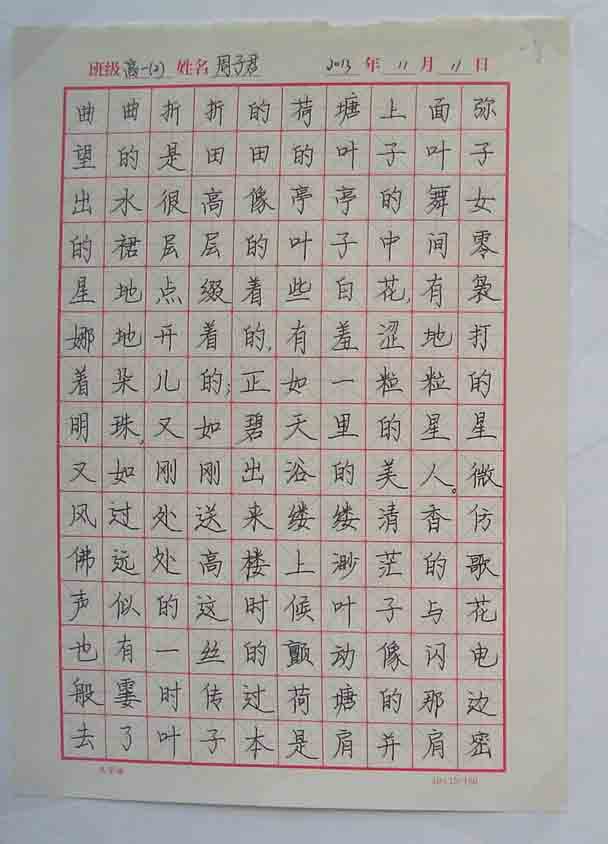 班级 高一(2) 姓名 周子君 2013 年 11 月 11 日
曲曲折折的荷塘上面弥
望的是田田的叶子叶子
出水很高像亭亭的舞女
的裙层层的叶子中间零
星地点缀着些白花,有袅
娜地开着的,有羞涩地打
着朵儿的;正如一粒粒的
明珠,又如碧天里的星星
又如刚刚出浴的美人。微
风过处送来缕缕清香仿
佛远处高楼上渺茫的歌
声似的这时候叶子与花
也有一丝的颤动像闪电
般霎时传过荷塘的那边
去了叶子本是肩并肩密